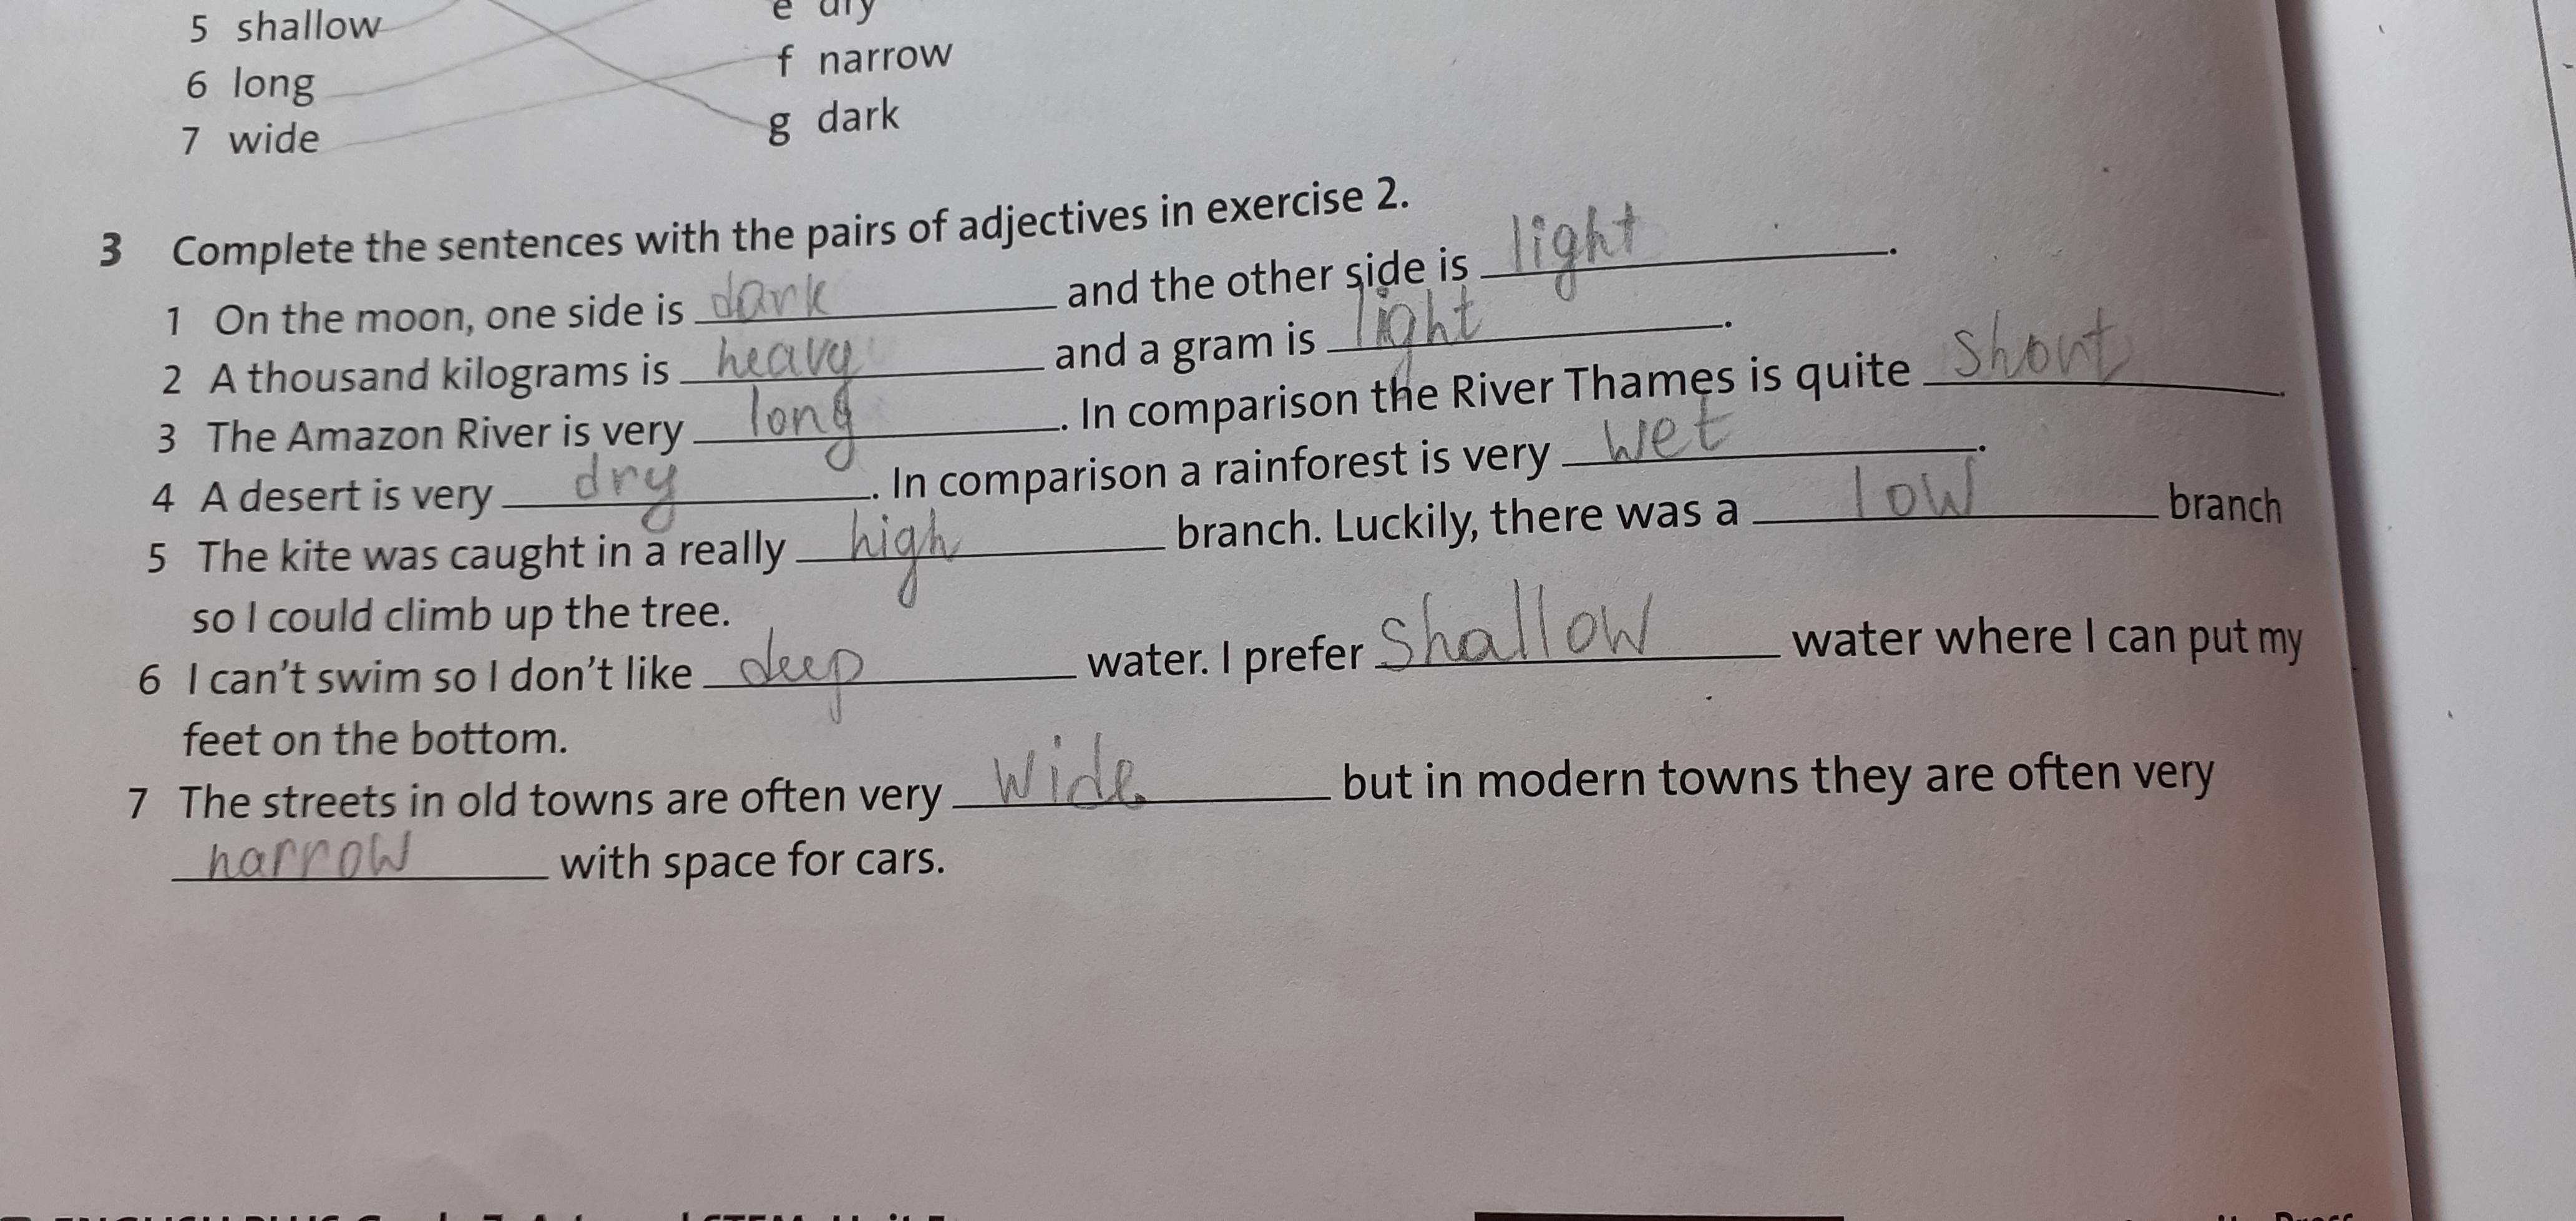 5 shallow
6 long
7 wide
e dry
f narrow
g dark
3 Complete the sentences with the pairs of adjectives in exercise 2.
1 On the moon, one side is dark and the other side is light.
2 A thousand kilograms is heavy and a gram is light.
3 The Amazon River is very long. In comparison the River Thames is quite short.
4 A desert is very dry. In comparison a rainforest is very wet.
5 The kite was caught in a really high branch. Luckily, there was a low branch
so I could climb up the tree.
6 I can't swim so I don't like deep water. I prefer shallow water where I can put my
feet on the bottom.
7 The streets in old towns are often very wide but in modern towns they are often very
narrow with space for cars.